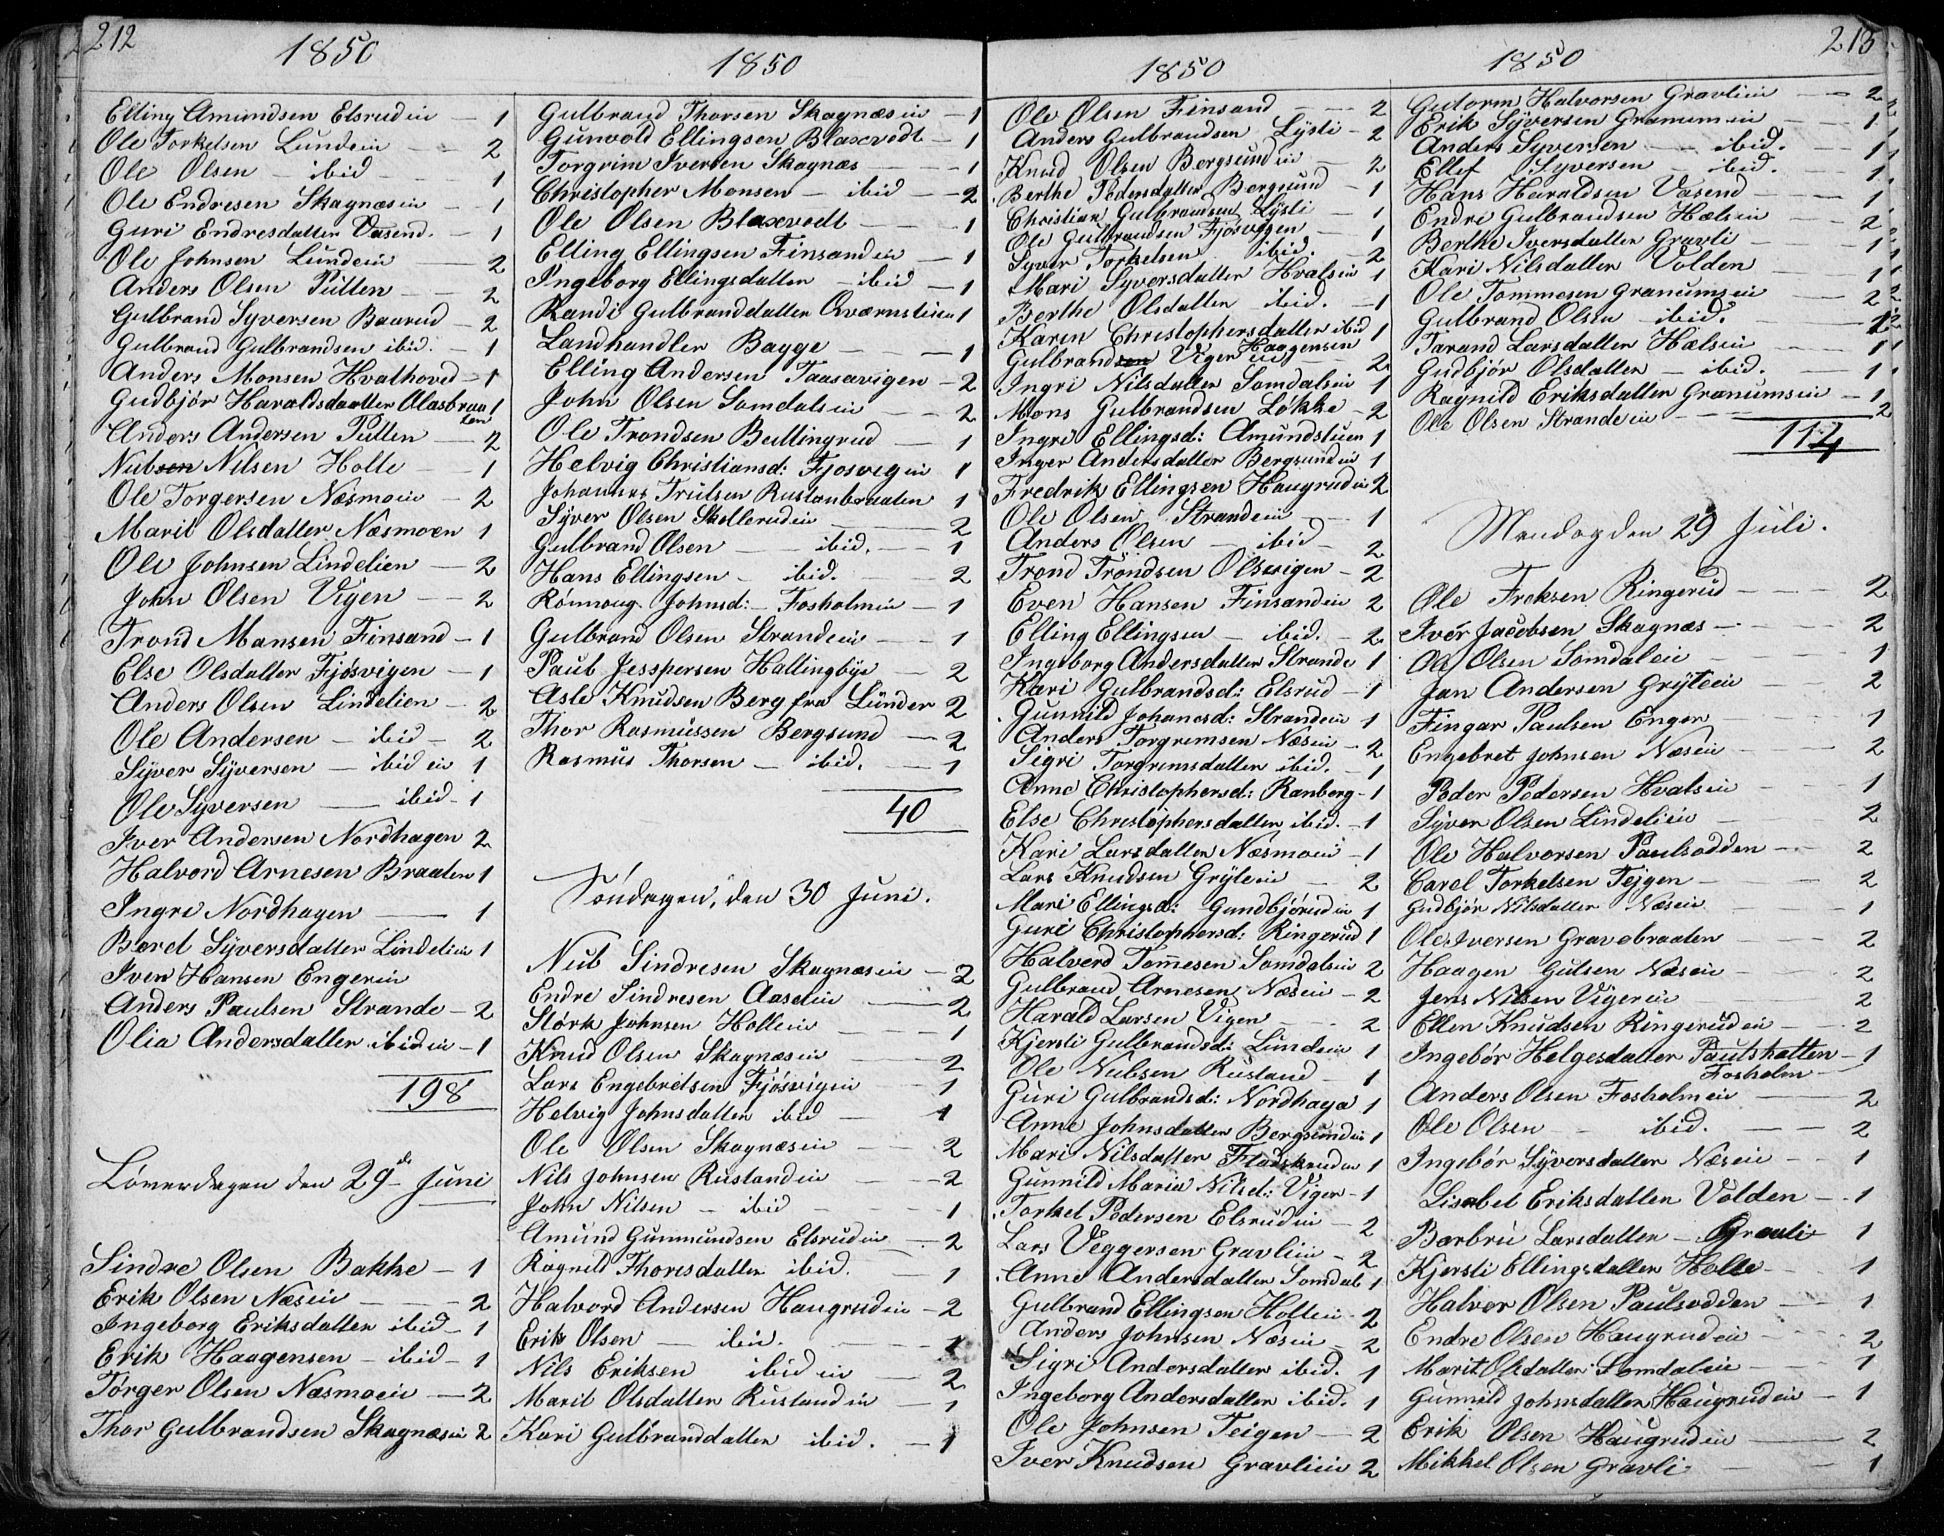 212
1850
Elling Amundsen Elsrudein — 1
Ole Torkelsen Lundein — 2
Ole Olsen — ibid — 1
Ole Endresen Skagnæsein — 1
Guri Endresdatter Vasend. — 1
Ole Johnsen Lundein — 2
Anders Olsen Pütten — 2
Gulbrand Syversen Baarud — 2
Gulbrand Gulbrandsen ibid. — 1
Anders Monsen Hvalhoved — 1
Gudbjör Haraldsdatter Olasbraa 1
ten
Anders Andersen Pütten — 2
Nubsen Nilsen Holte — 1
Ole Torgersen Næsmoein — 2
Marit Olsdatter Næsmoen 1
Ole Johnsen Lindelien — 2
John Olsen Vigen — 2
Trond Mansen Finsand — 1
Else Olsdatter Fjösvigen — 1
Anders Olsen Lindelien — 2
Ole Andersen — ibid — 2
Syver Syversen — ibid ein 1
Ole Syversen — ibid — 1
Iver Andersen Nordhagen 2
Halvord Arnesen Braaten 1
Ingri Nordhagen — 1
Barel Syversdatter Lindelien 1
Iver Hansen Engerein
Anders Paulsen Strande — 2
Olia Andersdatter ibid ein — 1
198
Löverdagen den 29de Juni
Sindre Olsen Bakke — 1
Erik Olsen Næsein — 2
Ingeborg Eriksdatter ibid — 1
Erik Haagensen — ibid — 1
Torger Olsen Næsmoein — 2
Thor Gulbrandsen Skagnæsein 2
1850
Gulbrand Thorsen Skagnæsein — 1
Gunvold Ellingsen Blaxrodt — 1
Torgrim Iversen Skagnæs — 1
Christopher Monsen — ibid — 2
Ole Olsen Blaxrodt — 1
Elling Ellingsen Finsandein — 1
Ingeborg Ellingsdatter — ibid — 1
Randi Gulbranddatter Qværnstein 1
Landhandler Bagge — 1
Elling Andersen Taasavigen — 2
John Olsen Somdalein — 2
Ole Trondsen Bullingrud — 1
Helvig Christiansd: Fjosvigein 1
Johannes Trulsen Rustanbraaten 1
Syver Olsen Skollerudein — 2
Gulbrand Olsen — ibid. — 1
Hans Ellingsen — ibid. — 2
Rönnoug Johnsd: Fosholmein — 1
Gulbrand Olsen Strandein — 1
Paul Jesspersen Hallingbye — 2
Asle Knudsen Berg fra Lünder 2
Thor Rasmüssen Bergsund — 2
Rasmüs Thorsen — ibid. — 1
40
Söndagen, den 30 Juni.
Nub Sindresen Skagnæsein — 2
Endre Sindresen Aaselein — 2
Störk Johnsen Hollein — 1
Knud Olsen Skagnæsein — 2
Lars Engebretsen Fjösvigein — 1
Helvig Johnsdatter ibid — 1
Ole Olsen Skagnæsein — 2
Nils Johnsen Rustandein — 2
John Nilsen — ibid — 1
Amund Gunmundsen Elsrudein — 2
Ragnild Thoresdatter ibid. — 1
Halvord Andersen Haugrudein — 2
Erik Olsen — ibid. — 1
Nils Eriksen ibid ein — 2
Marit Olsdatter Rustandein — 1
Kari Gulbranddatter ibid. — 1
1850
Ole Olsen Finsand — 2
Anders Gulbrandsen Lÿsti — 2
Knud Olsen Bergsundein — 2
Berthe Pedersdatter Bergsund — 1
Christian Gulbrandsen Lÿsti — 1
Ole Gulbrandsen Fjösvigen — 1
Syver Torkelsen ibid. — 2
Mari Syversdatter Hvalsein 1
Berthe Olsdatter ibid. — 1
Karen Christophersdatter ibid 1
Gulbrandsen Viger Haagensen 2
Ingri Nilsdatter Somdalein 1
Mons Gulbrandsen Løkke — 2
Ingri Ellingsd: Amundstuen 1
Inger Andersdatter Bergsundein 1
Fredrik Ellingsen Haugrudein 2
Ole Olsen Strandein — 1
Anders Olsen — ibid — 2
Trond Tröndsen Olsvigen — 2
Even Hansen Finsandein 2
Elling Ellingsen — ibid. — 2
Ingeborg Andersdatter Strande 1
Kari Gulbrandsd: Elsrud — 1
Gunnild Johanesd: Strandein 1
Anders Torgrimsen Næsein — 2
Sigri Torgrimsdatter ibid. — 1
Anne Christophersd: Ranberg — 1
Else Christophersdatter ibid. — 1
Kari Larsdatter Næsmoein — 1
Lars Knudsen Grÿtein — 2
Mari Ellingsd: Gundbjörudein 1
Guri Christophersd: Ringerud 1
Halverd Tom̄esen Somdalein 2
Gulbrand Arnesen Næsein — 2
Harald Larsen Vigen — 2
Kjersti Gulbrandsd: Lundein 1
Ole Nubsen Rustand — 1
Guri Gulbrandsd: Nordhaga 1
Anne Johnsdatter Bergsundein 1
Mari Nilsdatter Flaskerudein 1
Gunnild Maria Nilsd: Viger — 1
Torkel Pedersen Elsrudein — 2
Lars Veggersen Gravliein — 2
Anne Andersdatter Somdal 1
Gulbrand Ellingsen Hollein — 2
Anders Johnsen Næsein — 2
Sigri Andersdatter ibid. 1
Ingeborg Andersdatter ibid. 1
Ole Johnsen Teigen — 2
Iver Knudsen Gravliein 2
1850
213
Gutorm Halvorsen Gravliein — 2
Erik Syversen Granumein — 1
Anders Syversen — ibid. — 1
Ellef Syversen ibid. — 1
Hans Haraldsen Vasend — 1
Endre Gulbrandsen Hælsein — 2
Berthe Iversdatter Gravli — 1
Kari Nilsdatter Volden — 1
Ole Tommesen Granumsein — 2
Gulbrand Olsen ibid.
Tarand Larsdatter Hælsein — 1
Gudbjör Olsdatter — ibid. — 1
Ragnild Eriksdatter Granumsein — 1
Ole Olsen Strandein — 2
114
Mandag den 29 Juli.
Ole Froksen Ringerud — 2
Ivér Jacobsen Skagnæs — 2
Ole Olsen Somdalein — 1
Jan Andersen Grÿtein — 2
Fingar Paulsen Enger — 1
Engebret Johnsen Næsein — 2
Peder Pedersen Hvalsein — 1
Syver Olsen Lindelien — 2
Ole Halvorsen Paulsodden — 2
Carel Torkelsen Tejgen — 2
Gudbjör Nilsdatter Næsein — 1
Ole Iversen Gravebraaten — 2
Haagen Gulsen Næsein — 2
Jens Nilsen Vigerein — 2
Ellen Knudsen Ringerudein — 2
Ingebör Helgesdatter Paulshatten — 1
Fosholm
Anders Olsen Fosholmein — 2
Ole Olsen — ibid. — 2
Ingebör Syversdatter Næsein — 1
Lisabel Eriksdatter Volden — 1
Barbru Larsdatter — Gravli 1
Kjersti Ellingsdatter Holte — 1
Halvor Olsen Paulsodden — 1
Endre Olsen Haugrudein — 2
Marit Olsdatter Somdalein — 1
Gunnild Johnsdatter Haugrudein — 1
Erik Olsen Haugrudein — 2
Mikkel Olsen Gravli — 1